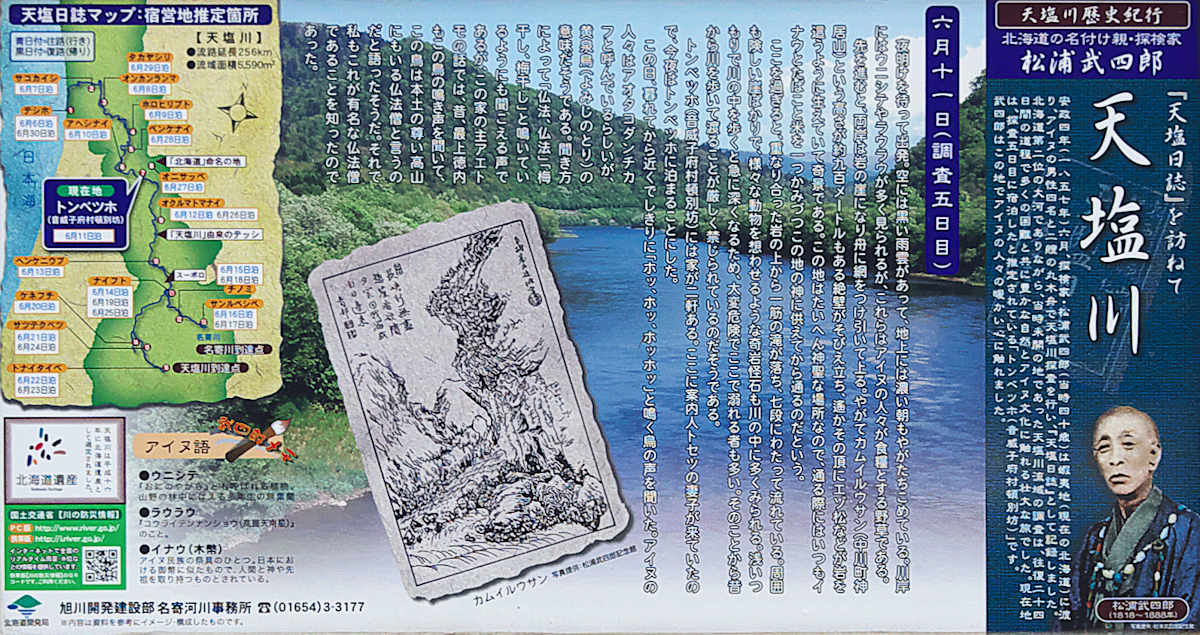 天塩川歴史紀行
北海道の名付け親・探検家
松浦武四郎
『天塩日誌』を訪ねて
天塩川
安政四年(一八五七年)六月、探検家・松浦武四郎(当時四十歳)は蝦夷地(現在の北海道)に渡り、アイヌの男性四名と二艘の丸木舟で天塩川探査を行い、『天塩日誌』として記録しました。
北海道第二位の大河でありながら、当時未開の地であった天塩川流域の調査は、往復二十四日間の道程で多くの困難と共に豊かな自然とアイヌ文化に触れる壮大な旅でした。現在地は、探査五日目に宿泊したと推定されている「トンベツホ(音威子府村頓別坊)」です。
武四郎はこの地でアイヌの人々の暖かい心に触れました。
松浦武四郎
(1818〜1888年)
写真提供:松浦武四郎記念館
六月十一日(調査五日目)
夜明けを待って出発。空には黒い雨雲があって、地上には濃い朝もやがたちこめている。川岸にはウニシテやラウラウが多く見られるが、これらはアイヌの人々が食糧とする野草である。
先を進むと、両岸は岩の崖になり舟に綱をつけ引いて上る。やがてカムイルウサン(谷川町神居山)という高さが約九百メートルもある絶壁がそびえ立ち、遙かその頂にエゾ松などが岩を這うように生えていて奇景である。この地はたいへん神聖な場所なので、通る際にはいつもイナウとたばこなどを一つかみづつこの地の神に供えてから通るのだという。
ここを過ぎると、重なり合った岩の上から一筋の滝が落ち、七段にわたって流れている。周囲も険しい崖ばかりで、様々な動物を想わせるような奇岩怪石も川の中に多くみられる。浅いつもりで川の中を歩くと急に深くなるため、大変危険でここで溺れる者も多い。そのことから昔から川を歩いて渡ることが厳しく禁じられているのだそうである。
トンベツホ(音威子府村頓別坊)には家が二軒ある。ここに案内人トセツの妻子が来ていたので、今夜はトンベツホに泊まることにした。
この日、暮れてから近くでしきりに「ホッ、ホッ、ホッホッ」と鳴く鳥の声を聞いた。アイヌの人々はアオタコタンチカフと呼んでいるらしいが、黄泉鳥(よみじのとり)の意味だそうである。聞き方によって「仏法、仏法」「梅干し、梅干し」と鳴いているようにも聞こえる声であるが、この家の主アエトモの話では、昔、最上徳内もこの鳥の鳴き声を聞いて、この鳥は本土の尊い高山にもいる仏法僧と言うのだと語ったそうだ。それで私もこれが有名な仏法僧であることを知ったのであった。
カムイルウサン 写真提供:松浦武四郎記念館
天塩日誌マップ:宿営地推定箇所
青日付→往路(行き)
黒日付→復路(帰り)
【天塩川】
●流路延長256km
●流域面積5,590m²
日本海
サコカイシ
6月7日泊
タカヤシリ
6月29日泊
オンカンランマ
6月8日泊
テシホ
6月6日泊
6月30日泊
アヘシナイ
6月10日泊
ホロビリプト
6月9日泊
ペンケナイ
6月28日泊
「北海道」命名の地
オニサッペ
6月27日泊
現在地
トンベツホ
(音威子府村頓別坊)
6月11日泊
オクルマトマナイ
6月12日泊 6月26日泊
「天塩川」由来のテッシ
ヘンケニウプ
6月13日泊
スーポロ
6月15日泊
6月18日泊
ナイフト
6月14日泊
6月19日泊
6月25日泊
チノミ
サンルペシペ
6月16日泊
6月17日泊
ケネフチ
6月20日泊
サツテクベツ
6月21日泊
6月24日泊
名寄川
名寄川到達点
天塩川到達点
トナイタイベ
6月22日泊
6月23日泊
北海道遺産
天塩川は平成十六年に北海道遺産として選定されました。
国土交通省【川の防災情報】
PC版 http://www.river.go.jp/
携帯版 http://i.river.go.jp/
インターネットで全国のリアルタイム雨量・水位などの情報を提供しています
アイヌ語
武四郎メモ
●ウニシテ
●ラウラウ
「コウライテンナンショウ(高麗天南星)」のこと。
●イナウ(木幣)
アイヌ民族の祭具のひとつ。日本における御幣に似たもので、人間と神や先祖を取り持つものとされている。
北海道開発局
旭川開発建設部 名寄河川事務所 ☎(01654)3-3177
※内容は資料を参考にイメージ・構成したものです。